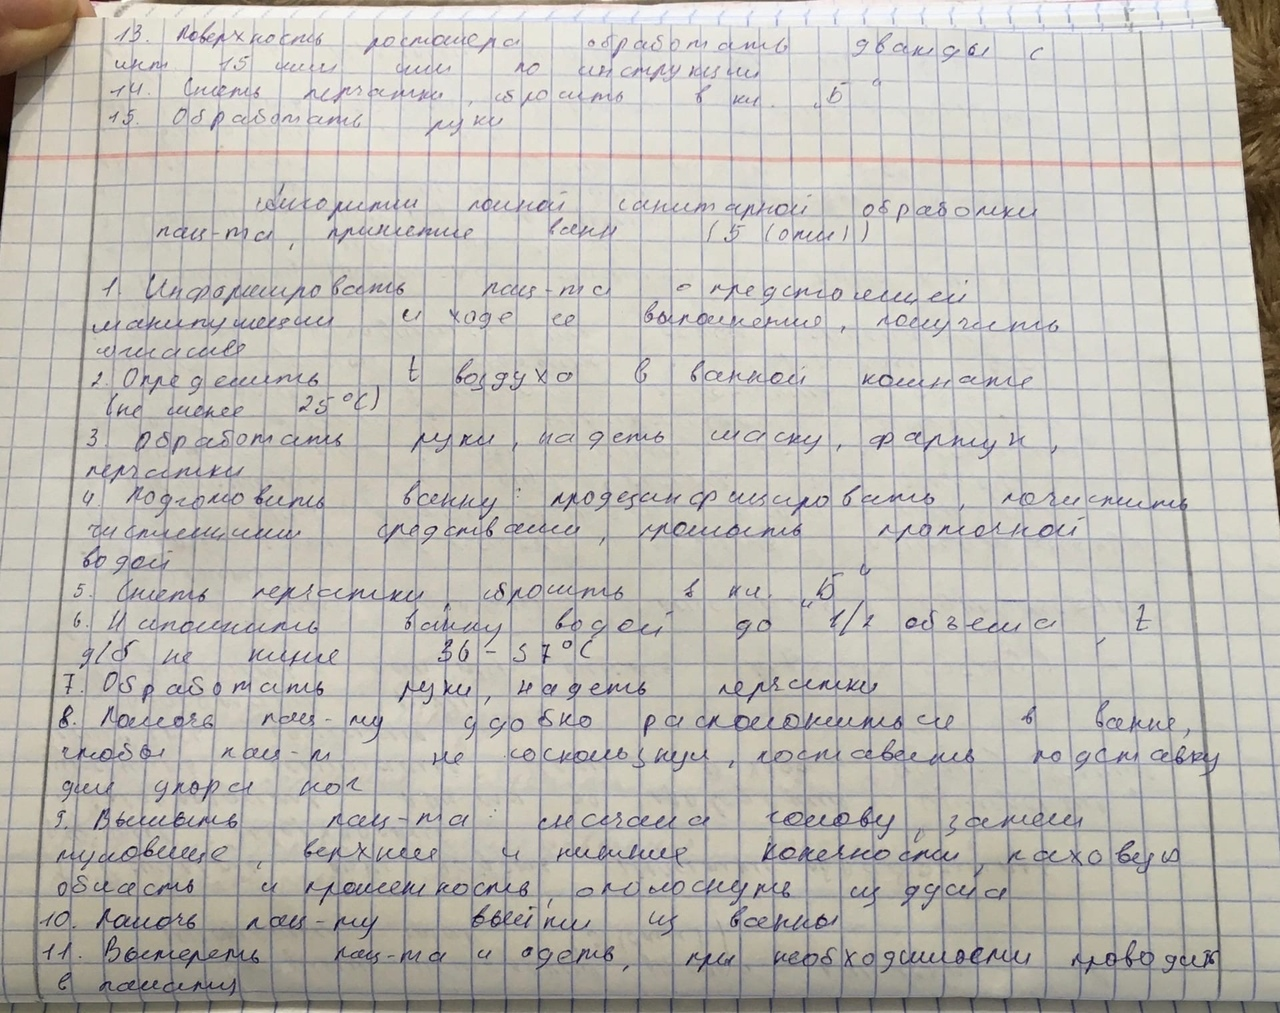 13. Поверхность ростомера обработать дважды с
инт 15 мин или по инструкции
14. Снять перчатки, сбросить в кл. „Б“
15. Обработать руки
Алгоритм полной санитарной обработки
пац-та, принятие ванн (5 (отм))
1. Информировать пац-та о предстоящей
манипуляции и ходе ее выполнения, получить
согласие
2. Определить t воздуха в ванной комнате
(не менее 25°C)
3. Обработать руки, надеть маску, фартук,
перчатки
4. Подготовить ванну: продезинфицировать, почистить
чистящими средствами, промыть проточной
водой
5. Снять перчатки, сбросить в кл. „Б“
6. Наполнить ванну водой до 1/2 объема, t
д/б не ниже 36-37°C
7. Обработать руки, надеть перчатки
8. Помочь пац-ту удобно расположиться в ванне,
чтобы пац-т не соскользнул, поставить подставку
для упора ног
9. Вымыть пац-та: сначала голову, затем
туловище, верхние и нижние конечности, паховую
область и промежность, ополоснуть из душа
10. Помочь пац-ту выйти из ванны
11. Вытереть пац-та и одеть, при необходимости проводить
в палату